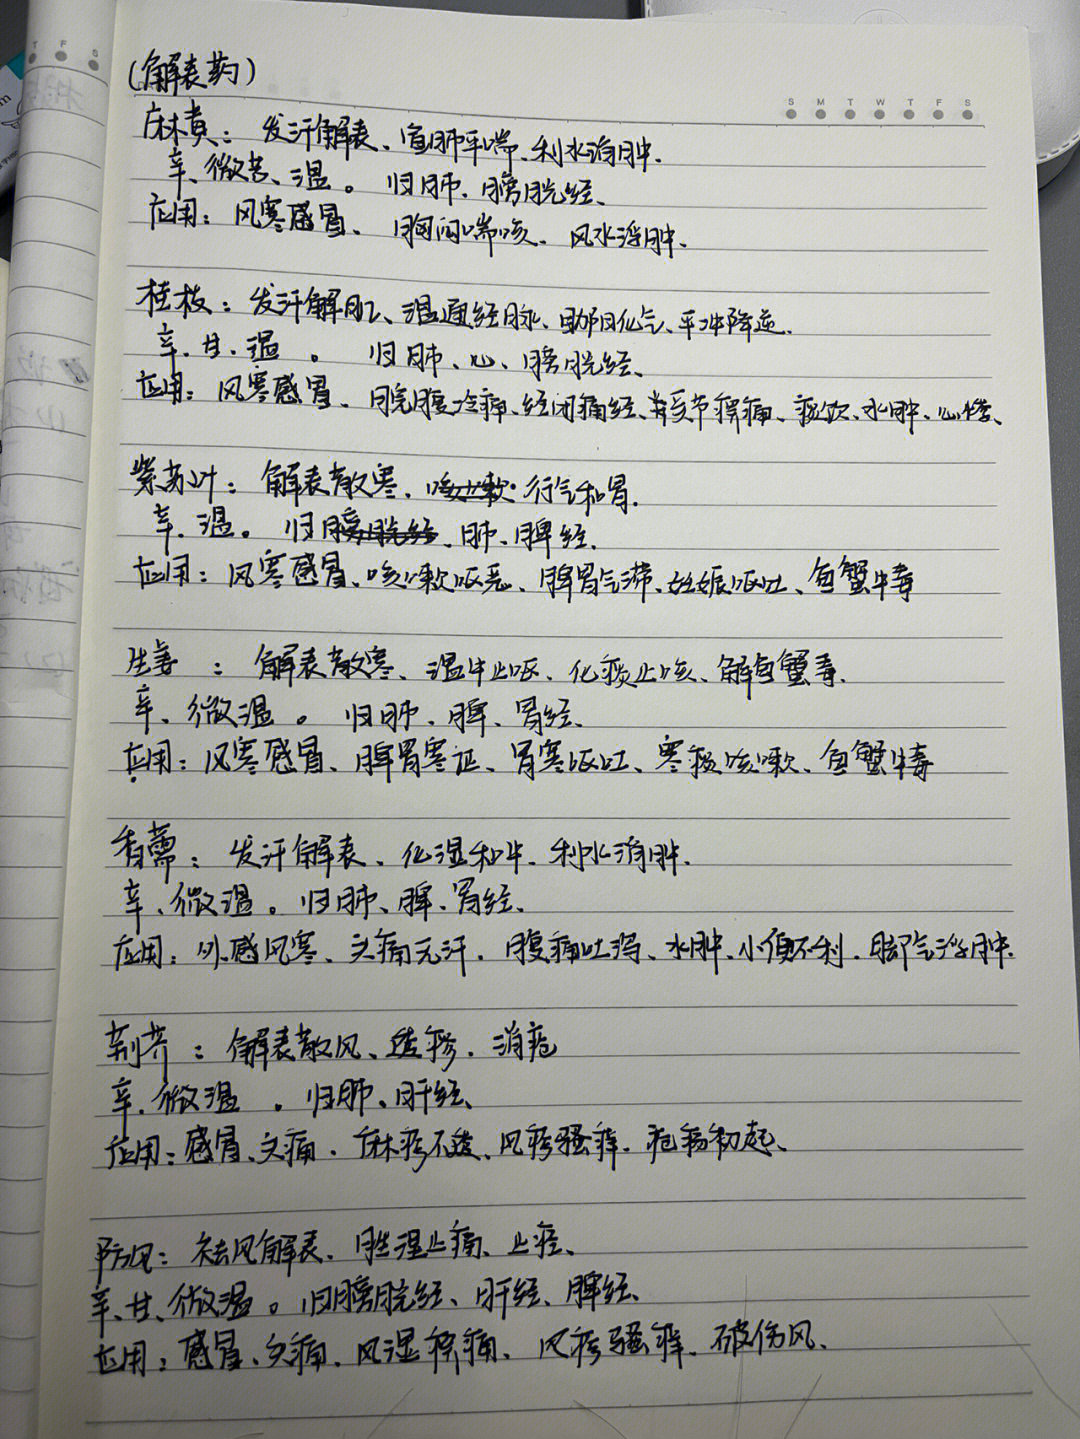 (解表药)
S M T W T F S
麻黄：发汗解表、宣肺平喘、利水消肿.
辛、微苦、温。归肺、膀胱经、
应用：风寒感冒、胸闷喘咳、风水浮肿.
桂枝：发汗解肌、温通经脉、助阳化气、平冲降逆.
辛、甘、温。归肺、心、膀胱经、
应用：风寒感冒、脘腹冷痛、经闭痛经、关节痹痛、痰饮、水肿、心悸、
紫苏叶：解表散寒、行气和胃.
辛、温。归肺、脾经.
应用：风寒感冒、咳嗽呕恶、脾胃气滞、妊娠呕吐、鱼蟹中毒
生姜：解表散寒、温中止呕、化痰止咳、解鱼蟹毒.
辛、微温。归肺、脾、胃经.
应用：风寒感冒、脾胃寒证、胃寒呕吐、寒痰咳嗽、鱼蟹中毒
香薷：发汗解表、化湿和中、利水消肿.
辛、微温。归肺、脾、胃经.
应用：外感风寒、头痛无汗、腹痛吐泻、水肿、小便不利、脚气浮肿.
荆芥：解表散风、透疹、消疮
辛、微温。归肺、肝经、
应用：感冒、头痛、麻疹不透、风疹骚痒、疮疡初起、
防风：祛风解表、胜湿止痛、止痉、
辛、甘、微温。归膀胱经、肝经、脾经、
应用：感冒、头痛、风湿痹痛、风疹骚痒、破伤风、